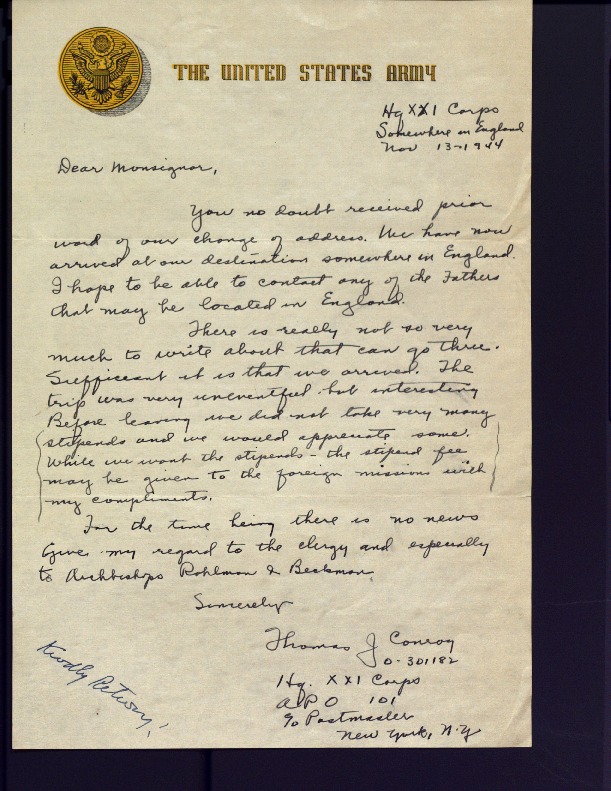 THE UNITED STATES ARMY
Hq XXI Corps
Somewhere in England
Nov 13-1944
Dear Monsignor,
You no doubt received prior
word of our change of address. We have now
arrived at our destination somewhere in England.
I hope to be able to contact any of the Fathers
that may be located in England.
There is really not so very
much to write about that can go thru.
Sufficeant it is that we arrived. The
trip was very uneventful but interesting
Before leaving we did not take very many
stipends and we would appreciate some.
While we want the stipends - the stipend fee
may be given to the foreign missions with
my compliments.
For the time being there is no news
Give my regard to the clergy and especially
to Archbishops Rohlman & Beckman
Sincerely
Thomas J Conroy
O-301182
Hq. XXI Corps
A P O 101
c/o Postmaster
New York, N.Y
Kindly Return!